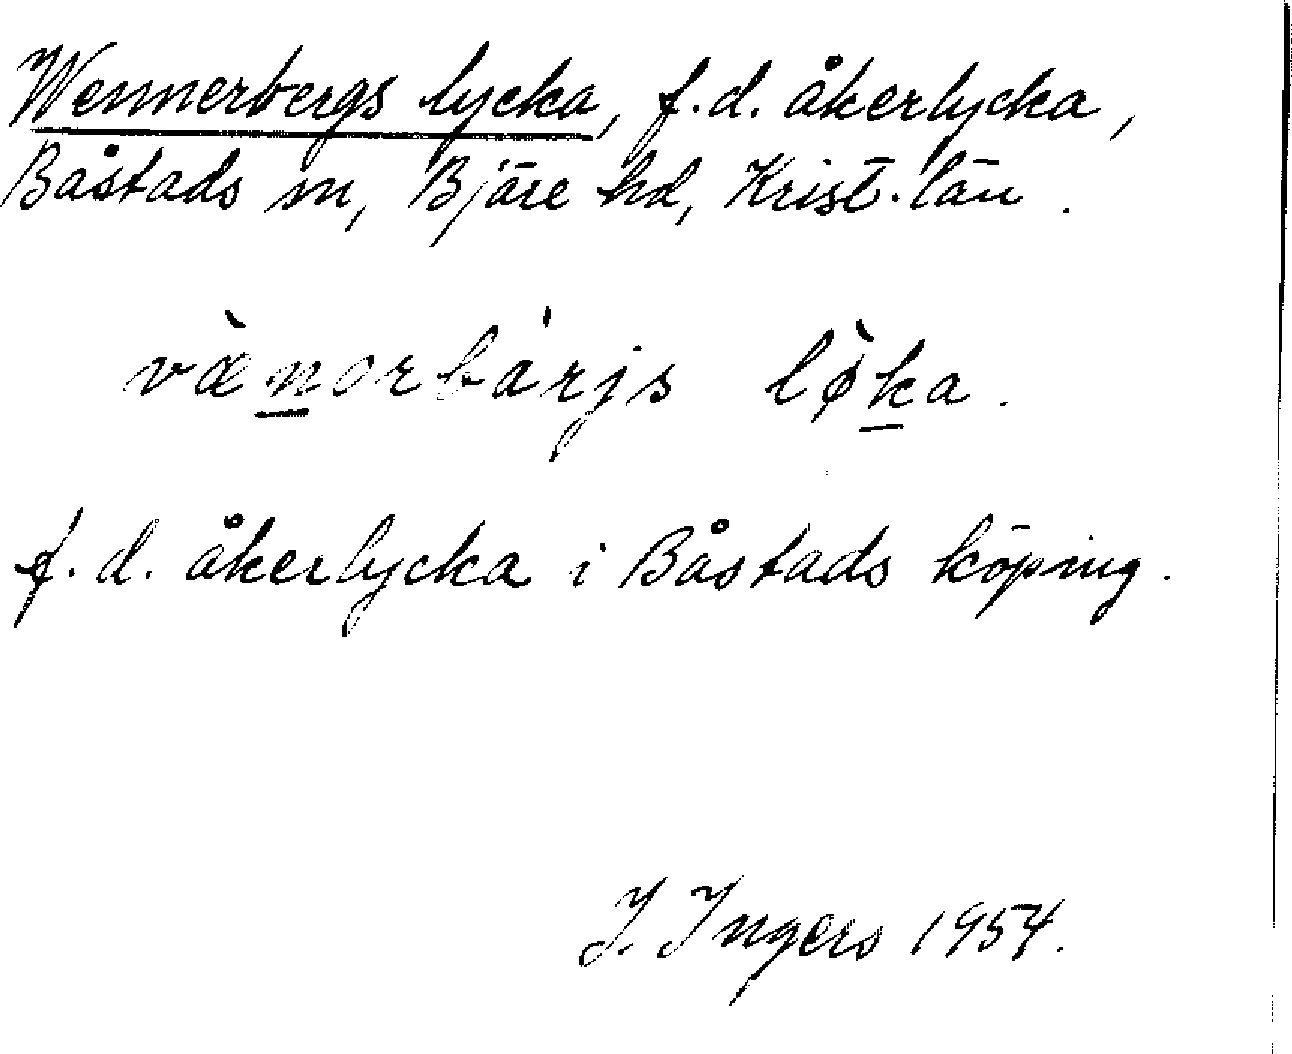 Wennerbergs lycka, f.d. åkerlycka,
Båstads sn, Bjäre hd, Krist. län.
væ̀norbárjs lø̀ka.
f.d. åkerlycka i Båstads köping.
I. Ingers 1954.